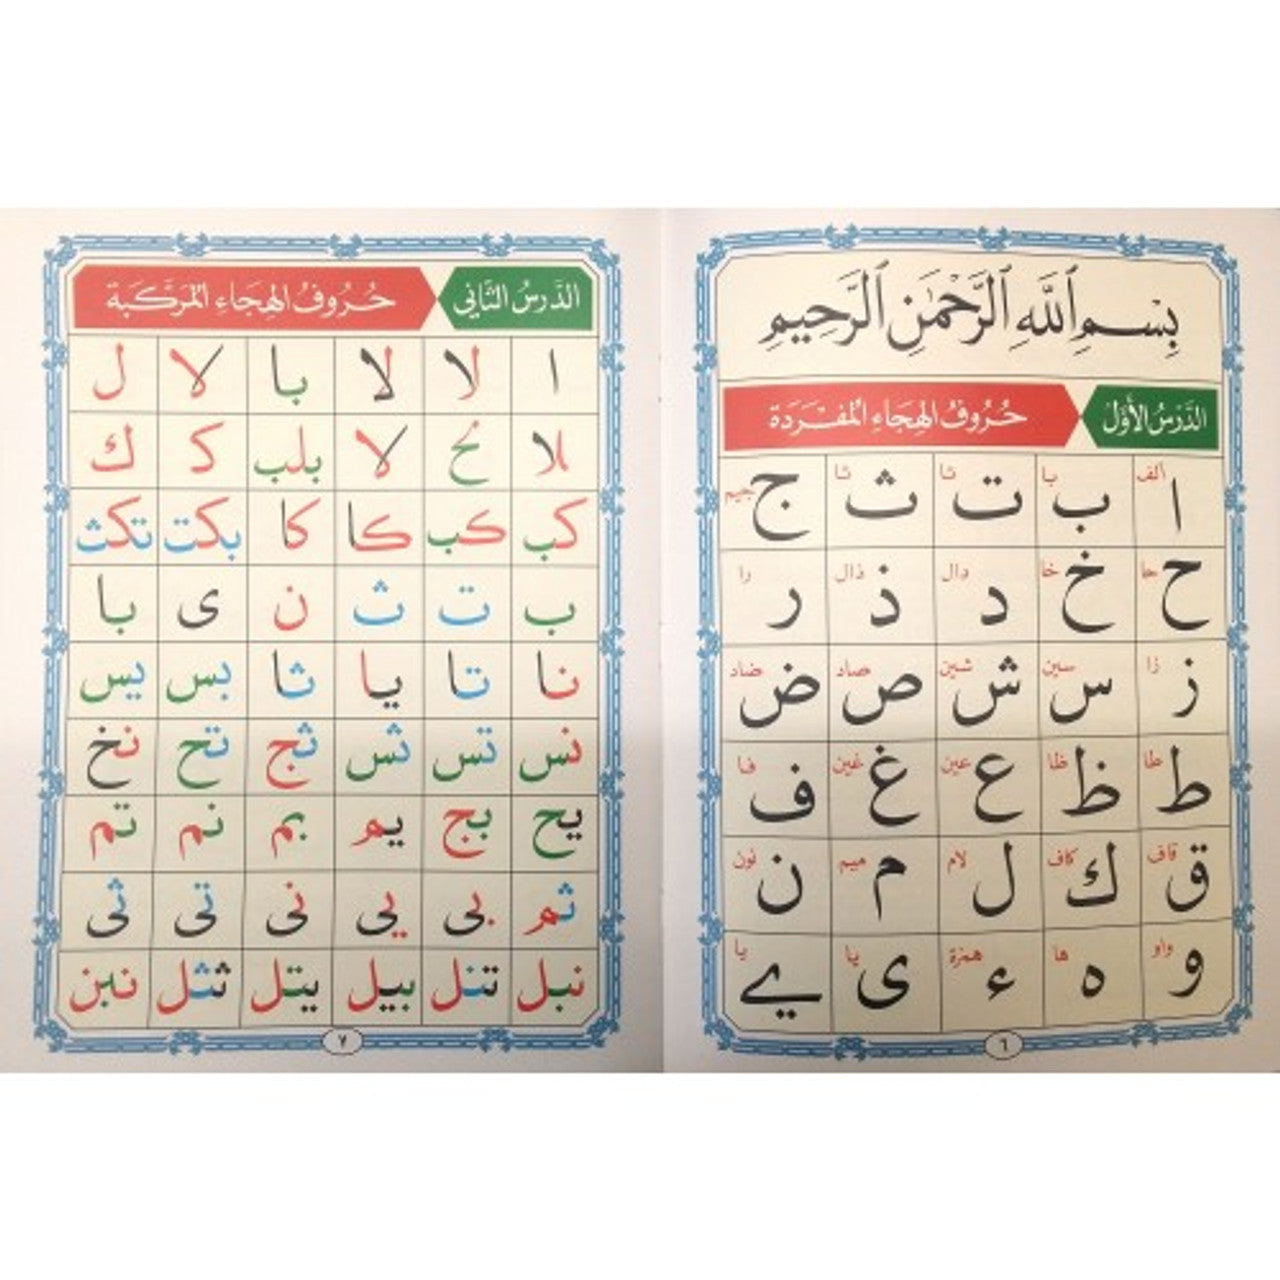 بِسْمِ ٱللَّهِ ٱلرَّحْمَٰنِ ٱلرَّحِيمِ
الدَّرْسُ الأَوَّلُ حُرُوفُ الْهِجَاءِ الْمُفْرَدَة
ا ألف ب با ت تا ث ثا ج جيم
ح حا خ خا د دال ذ ذال ر را
ز زا س سين ش شين ص صاد ض ضاد
ط طا ظ ظا ع عين غ غين ف فا
ق قاف ك كاف ل لام م ميم ن نون
و واو ه ها ء همزة ى يا ے يا
٦
الدَّرْسُ الثَّانِي حُرُوفُ الْهِجَاءِ الْمُرَكَّبَة
ا لا لا با لا ل
بلا لا بلب ك ك
كب كب كا كا بكت تكث
ب ت ث ن ى با
نا تا يا ثا بس يس
نس تس ثس ثج تح نخ
يح بج يم بم نم تم
ثم بى يى نى تى ثى
نبل تنل بيل يتل ثثل نبن
٧